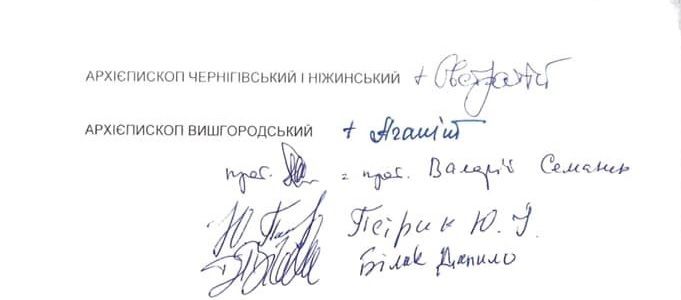 АРХІЄПИСКОП ЧЕРНІГІВСЬКИЙ І НІЖИНСЬКИЙ + Євстратій
АРХІЄПИСКОП ВИШГОРОДСЬКИЙ + Агапіт
прот. = прот. Валерій Семанцо
Петрик Ю. І.
Білак Данило